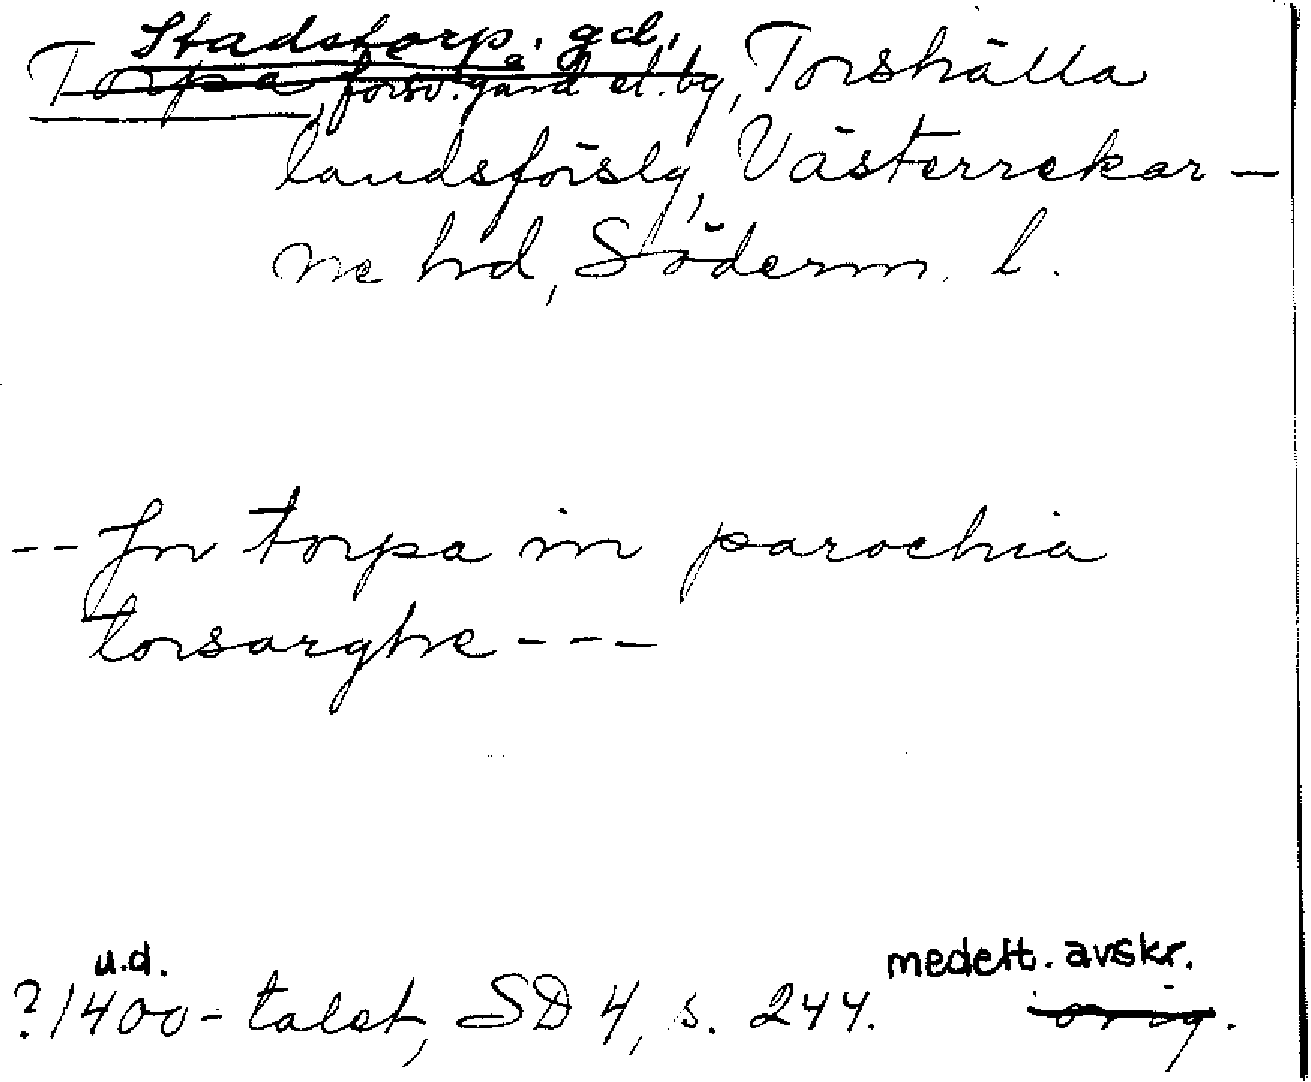 Stadstorp. gd.
Torpa, försv. gård el. by, Torshälla
landsförslg, Västerrekar-
ne hrd, Söderm. l.
-- Jn torpa in parochia
torsarghe ---
u.d. medelt. avskr.
?1400-talet, SD 4, s. 244. orig.